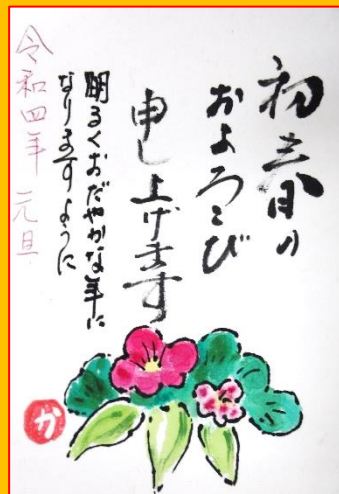 初春の
およろこび
申し上げます
明るくおだやかな年に
なりますように
令和四年 元旦
か